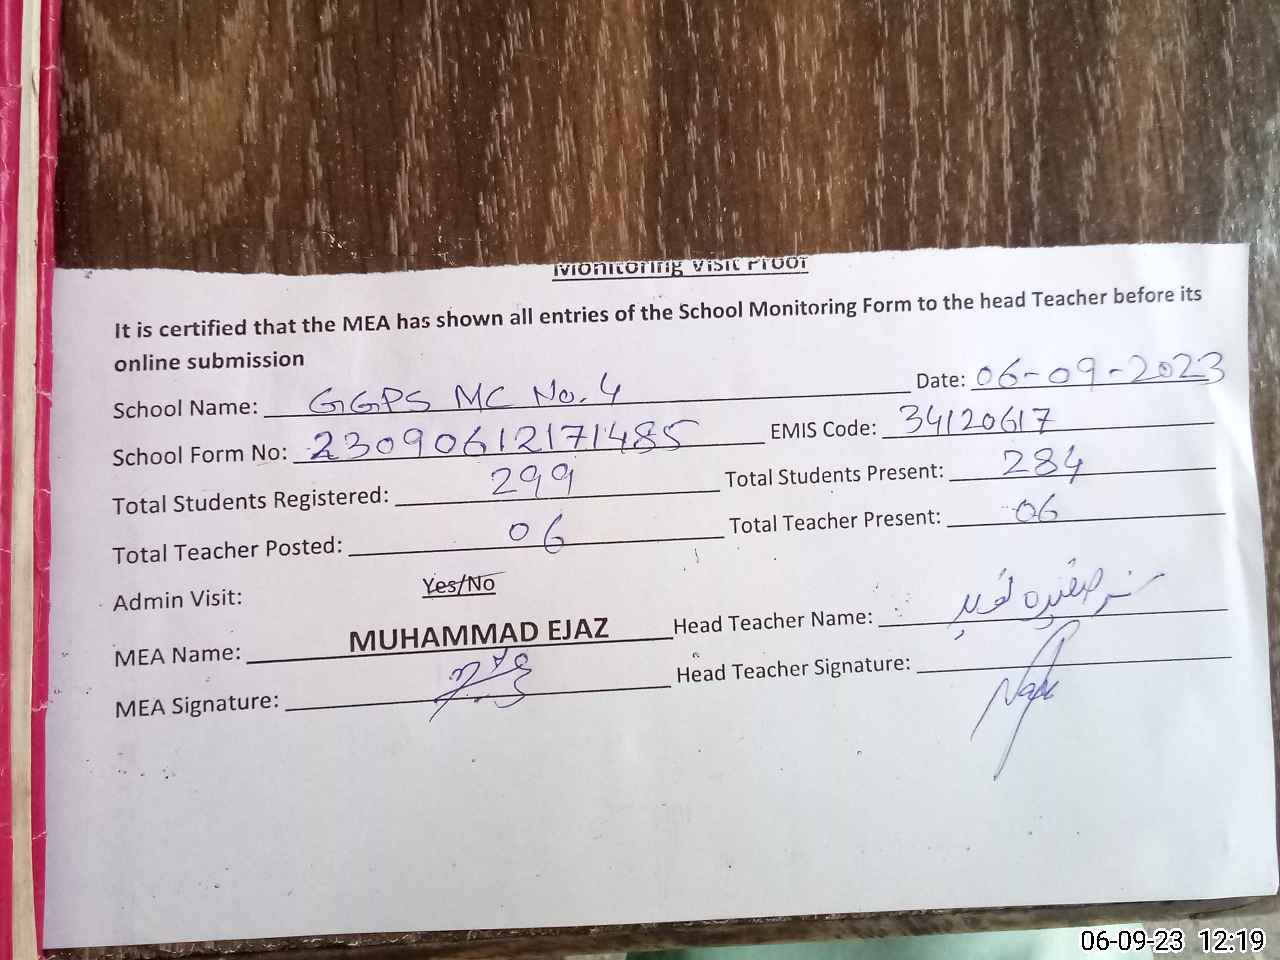 Monitoring Visit Proof
It is certified that the MEA has shown all entries of the School Monitoring Form to the head Teacher before its
online submission
School Name: GGPS MC No. 4 Date: 06-09-2023
School Form No: 23090612171485 EMIS Code: 34120617
Total Students Registered: 299 Total Students Present: 284
Total Teacher Posted: 06 Total Teacher Present: 06
Admin Visit: Yes/No
MEA Name: MUHAMMAD EJAZ Head Teacher Name:
MEA Signature: Head Teacher Signature:
06-09-23 12:19